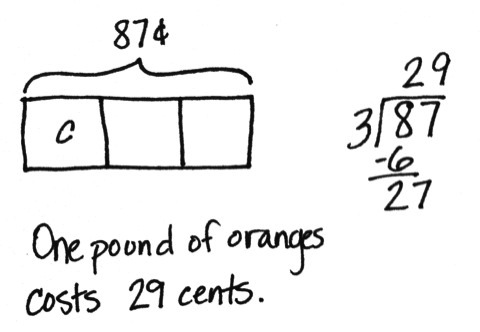 87¢
c
29
3)87
-6
27
One pound of oranges
costs 29 cents.